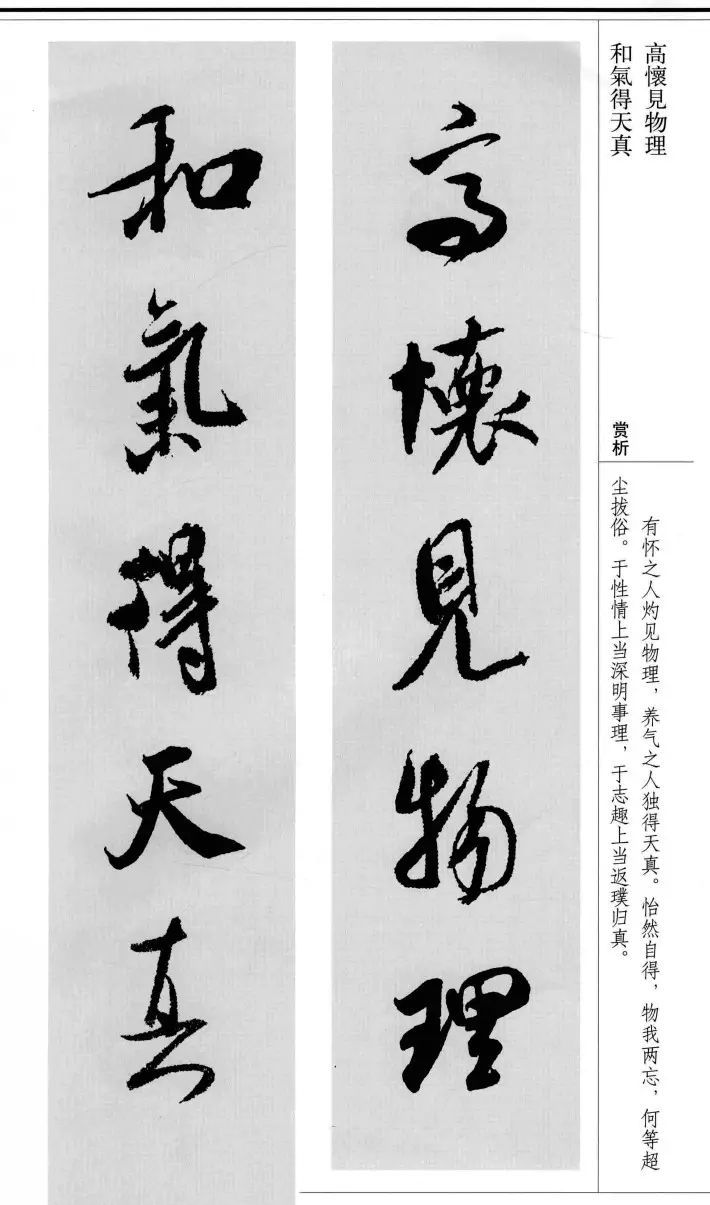 高懷見物理
和氣得天真
赏析
有怀之人灼见物理，养气之人独得天真。怡然自得，物我两忘，何等超
尘拔俗。于性情上当深明事理，于志趣上当返璞归真。
高懷見物理
和氣得天真